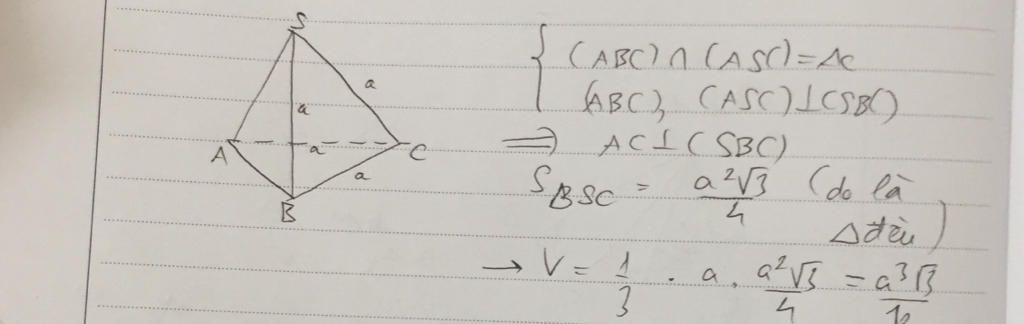 S
a
a
A
a
C
a
B
(ABC) ∩ (ASC) = AC
(ABC), (ASC) ⊥ (SBC)
⟹ AC ⊥ (SBC)
S_BSC = a²√3/4 (do là
Δ đều)
→ V = 1/3 . a . a²√3/4 = a³√3/12